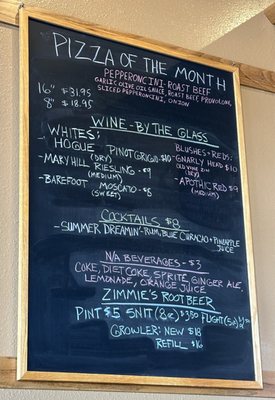 PIZZA OF THE MONTH
PEPPERONCINI-ROAST BEEF
GARLIC OLIVE OIL SAUCE, ROAST BEEF, PROVOLONE,
SLICED PEPPERONCINI, ONION
16" $31.95
8" $18.95
WINE-BY THE GLASS
WHITES:
HOGUE PINOT GRIGIO-$10
(DRY)
-MARYHILL RIESLING-$9
(MEDIUM)
-BAREFOOT MOSCATO-$8
(SWEET)
BLUSHES+REDS:
-GNARLY HEAD $10
OLD VINE ZIN
(DRY)
-APOTHIC RED $9
(MEDIUM)
COCKTAILS $8
-SUMMER DREAMIN'-RUM, BLUE CURACAO+PINEAPPLE
JUICE
N/A BEVERAGES-$3
COKE, DIET COKE, SPRITE, GINGER ALE,
LEMONADE, ORANGE JUICE
ZIMMIE'S ROOT BEER
PINT $5 SNIT (8oz) $3.50 FLIGHT (5oz)
GROWLER: NEW $18
REFILL $16